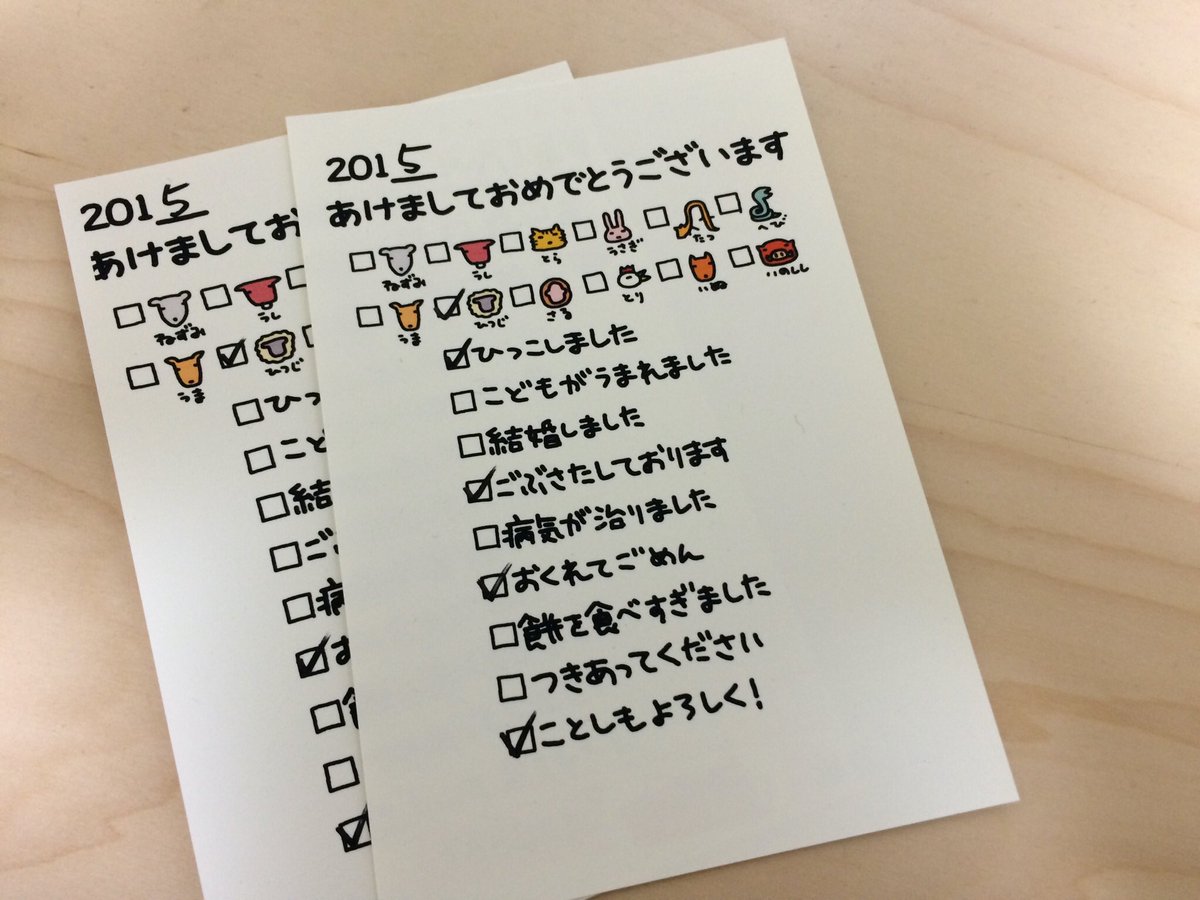 2015
あけましておめでとうございます
□ねずみ □うし □とら □うさぎ □たつ □へび
□うま ☑ひつじ □さる □とり □いぬ □いのしし
☑ひっこしました
□こどもがうまれました
□結婚しました
☑ごぶさたしております
□病気が治りました
☑おくれてごめん
□餅を食べすぎました
□つきあってください
☑ことしもよろしく!
2015
あけましてお
□ねずみ □うし
□うま ☑ひつじ
□ひっ
□こど
□結
□ご
□病
☑お